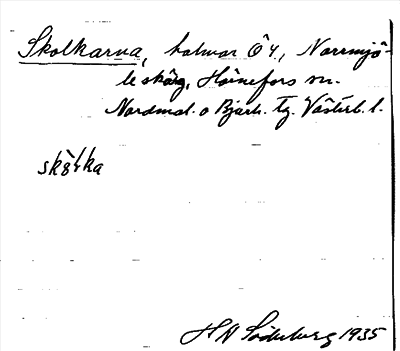 Skolkarna, holmar Ö 4., Norrmjö-
leskärg, Hörnefors sn.
Nordmal. o Bjurh. tg. Västerb. l.
skòlka
H N Söderberg 1935